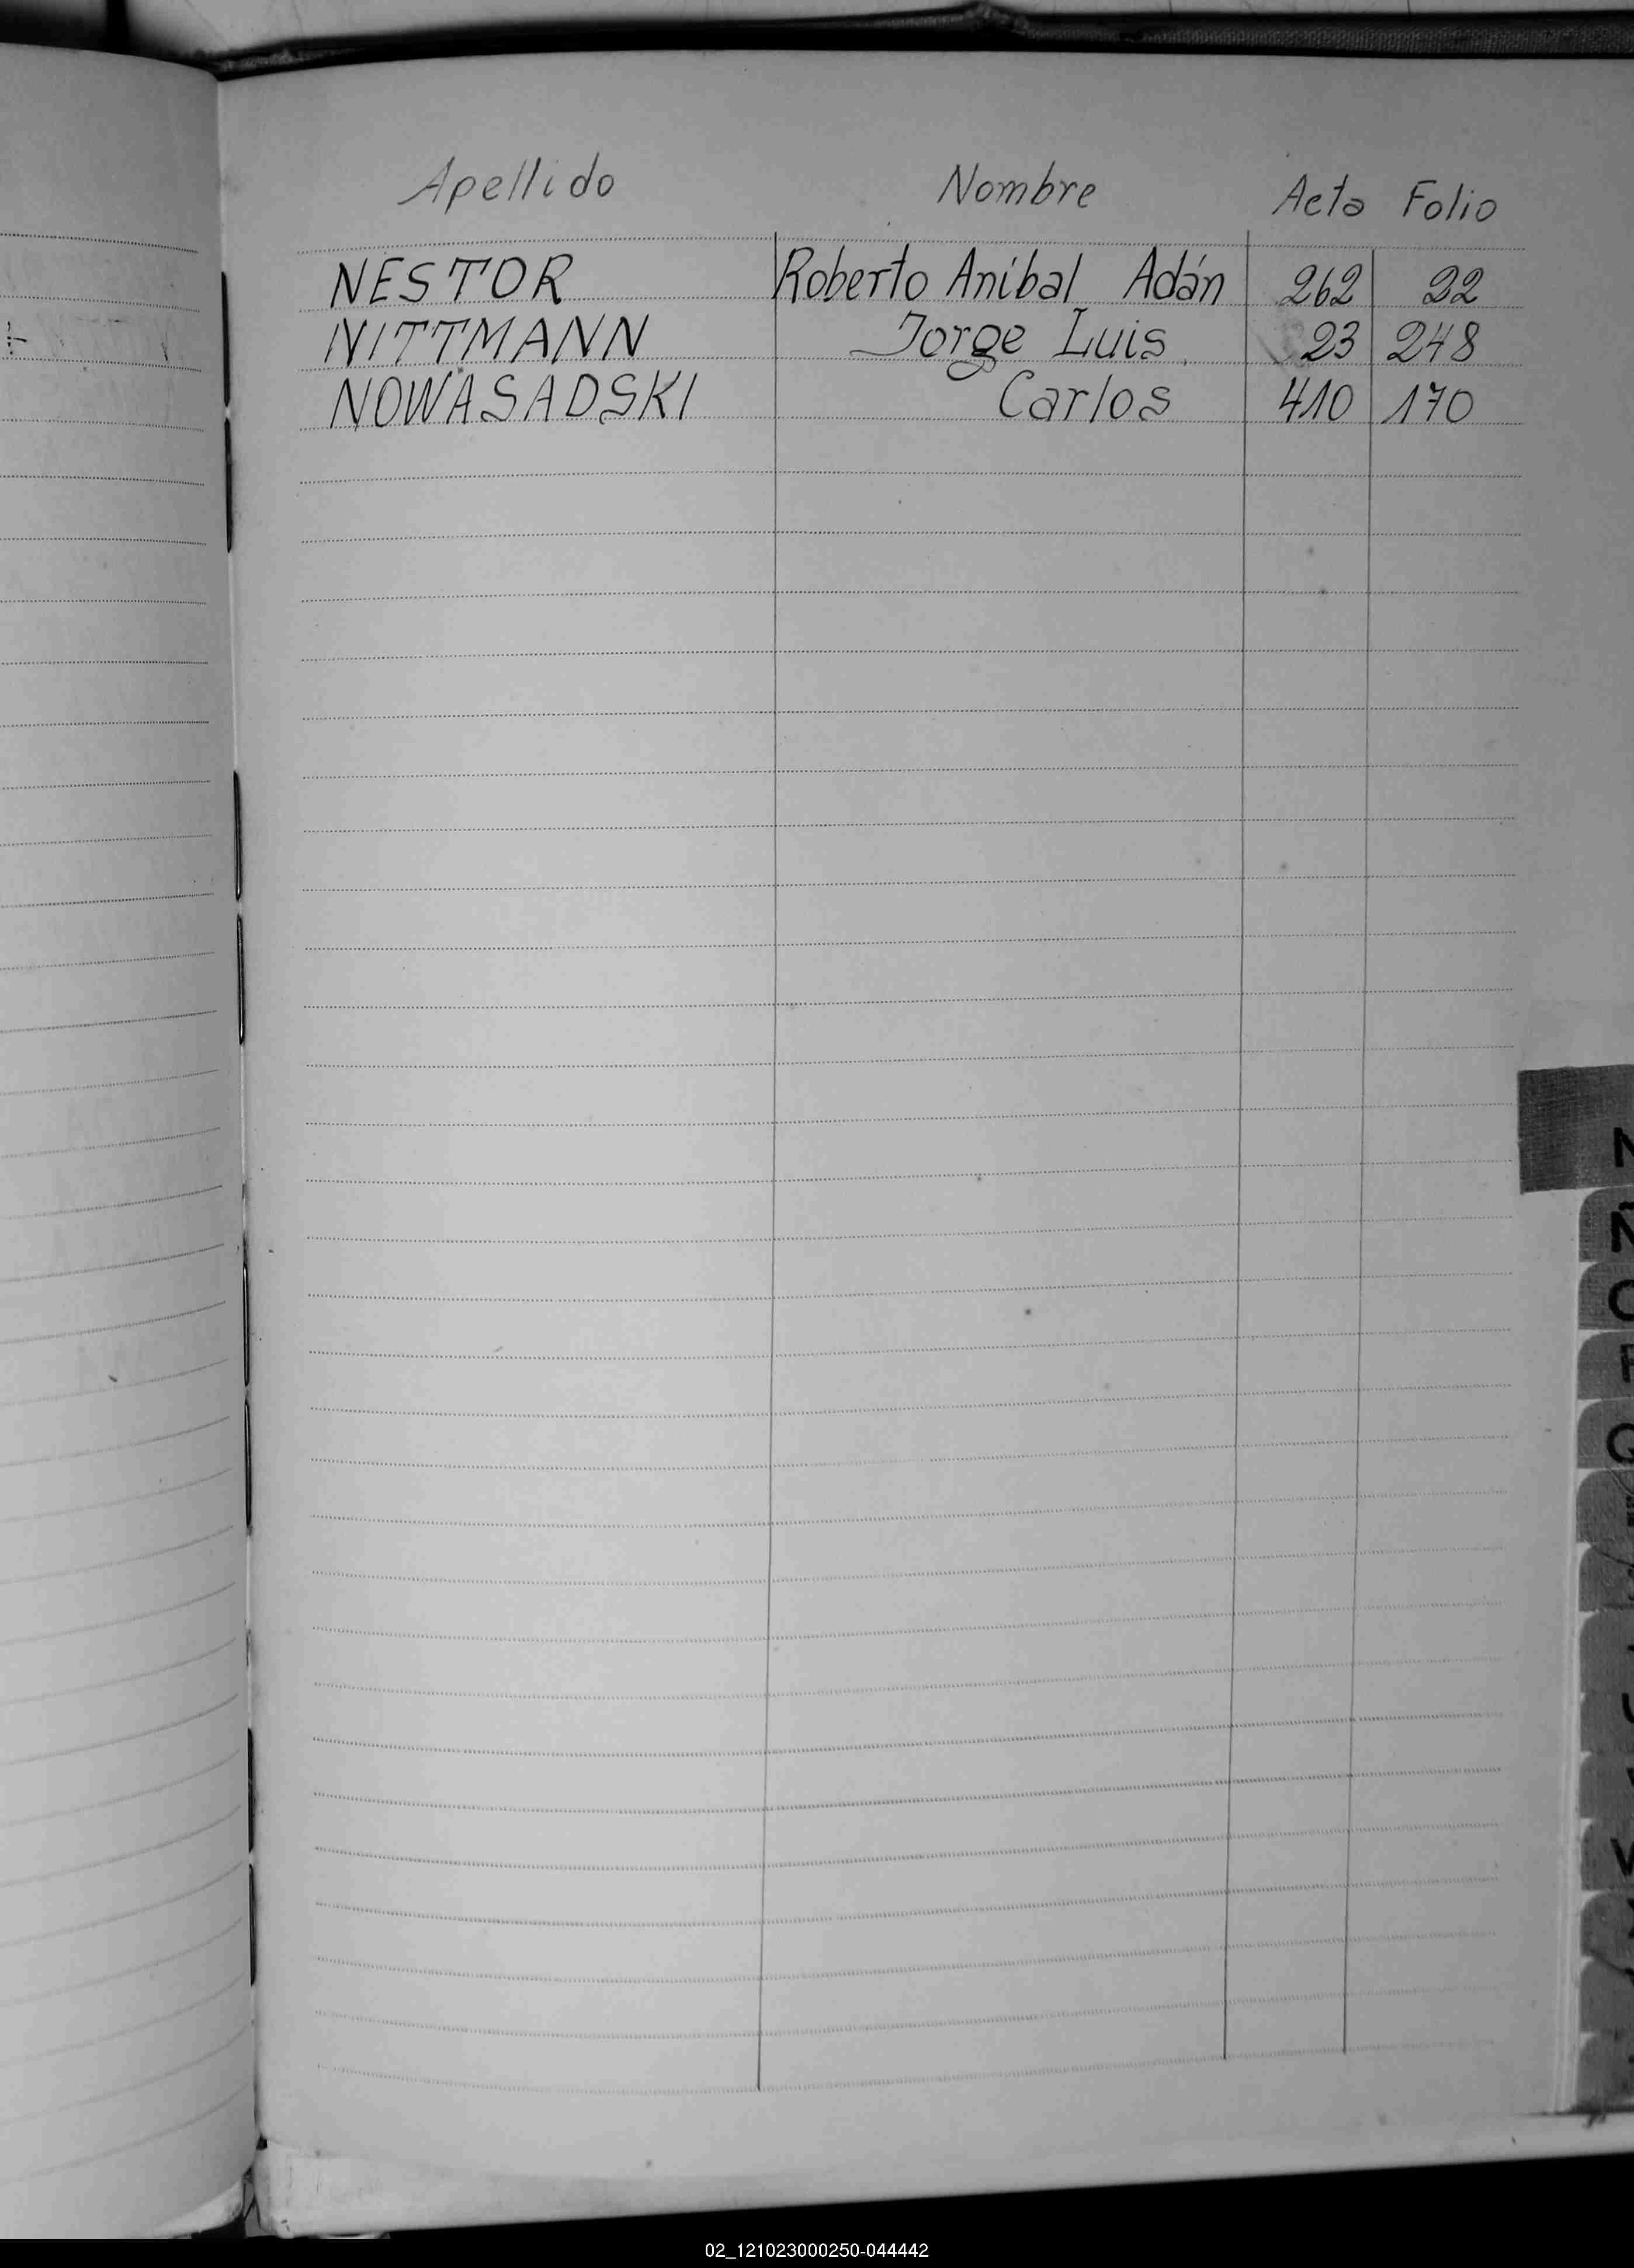 Apellido Nombre Acta Folio
NESTOR Roberto Anibal Adán 262 22
NITTMANN Jorge Luis 23 248
NOWASADSKI Carlos 410 170
N
Ñ
O
P
Q
02_121023000250-044442